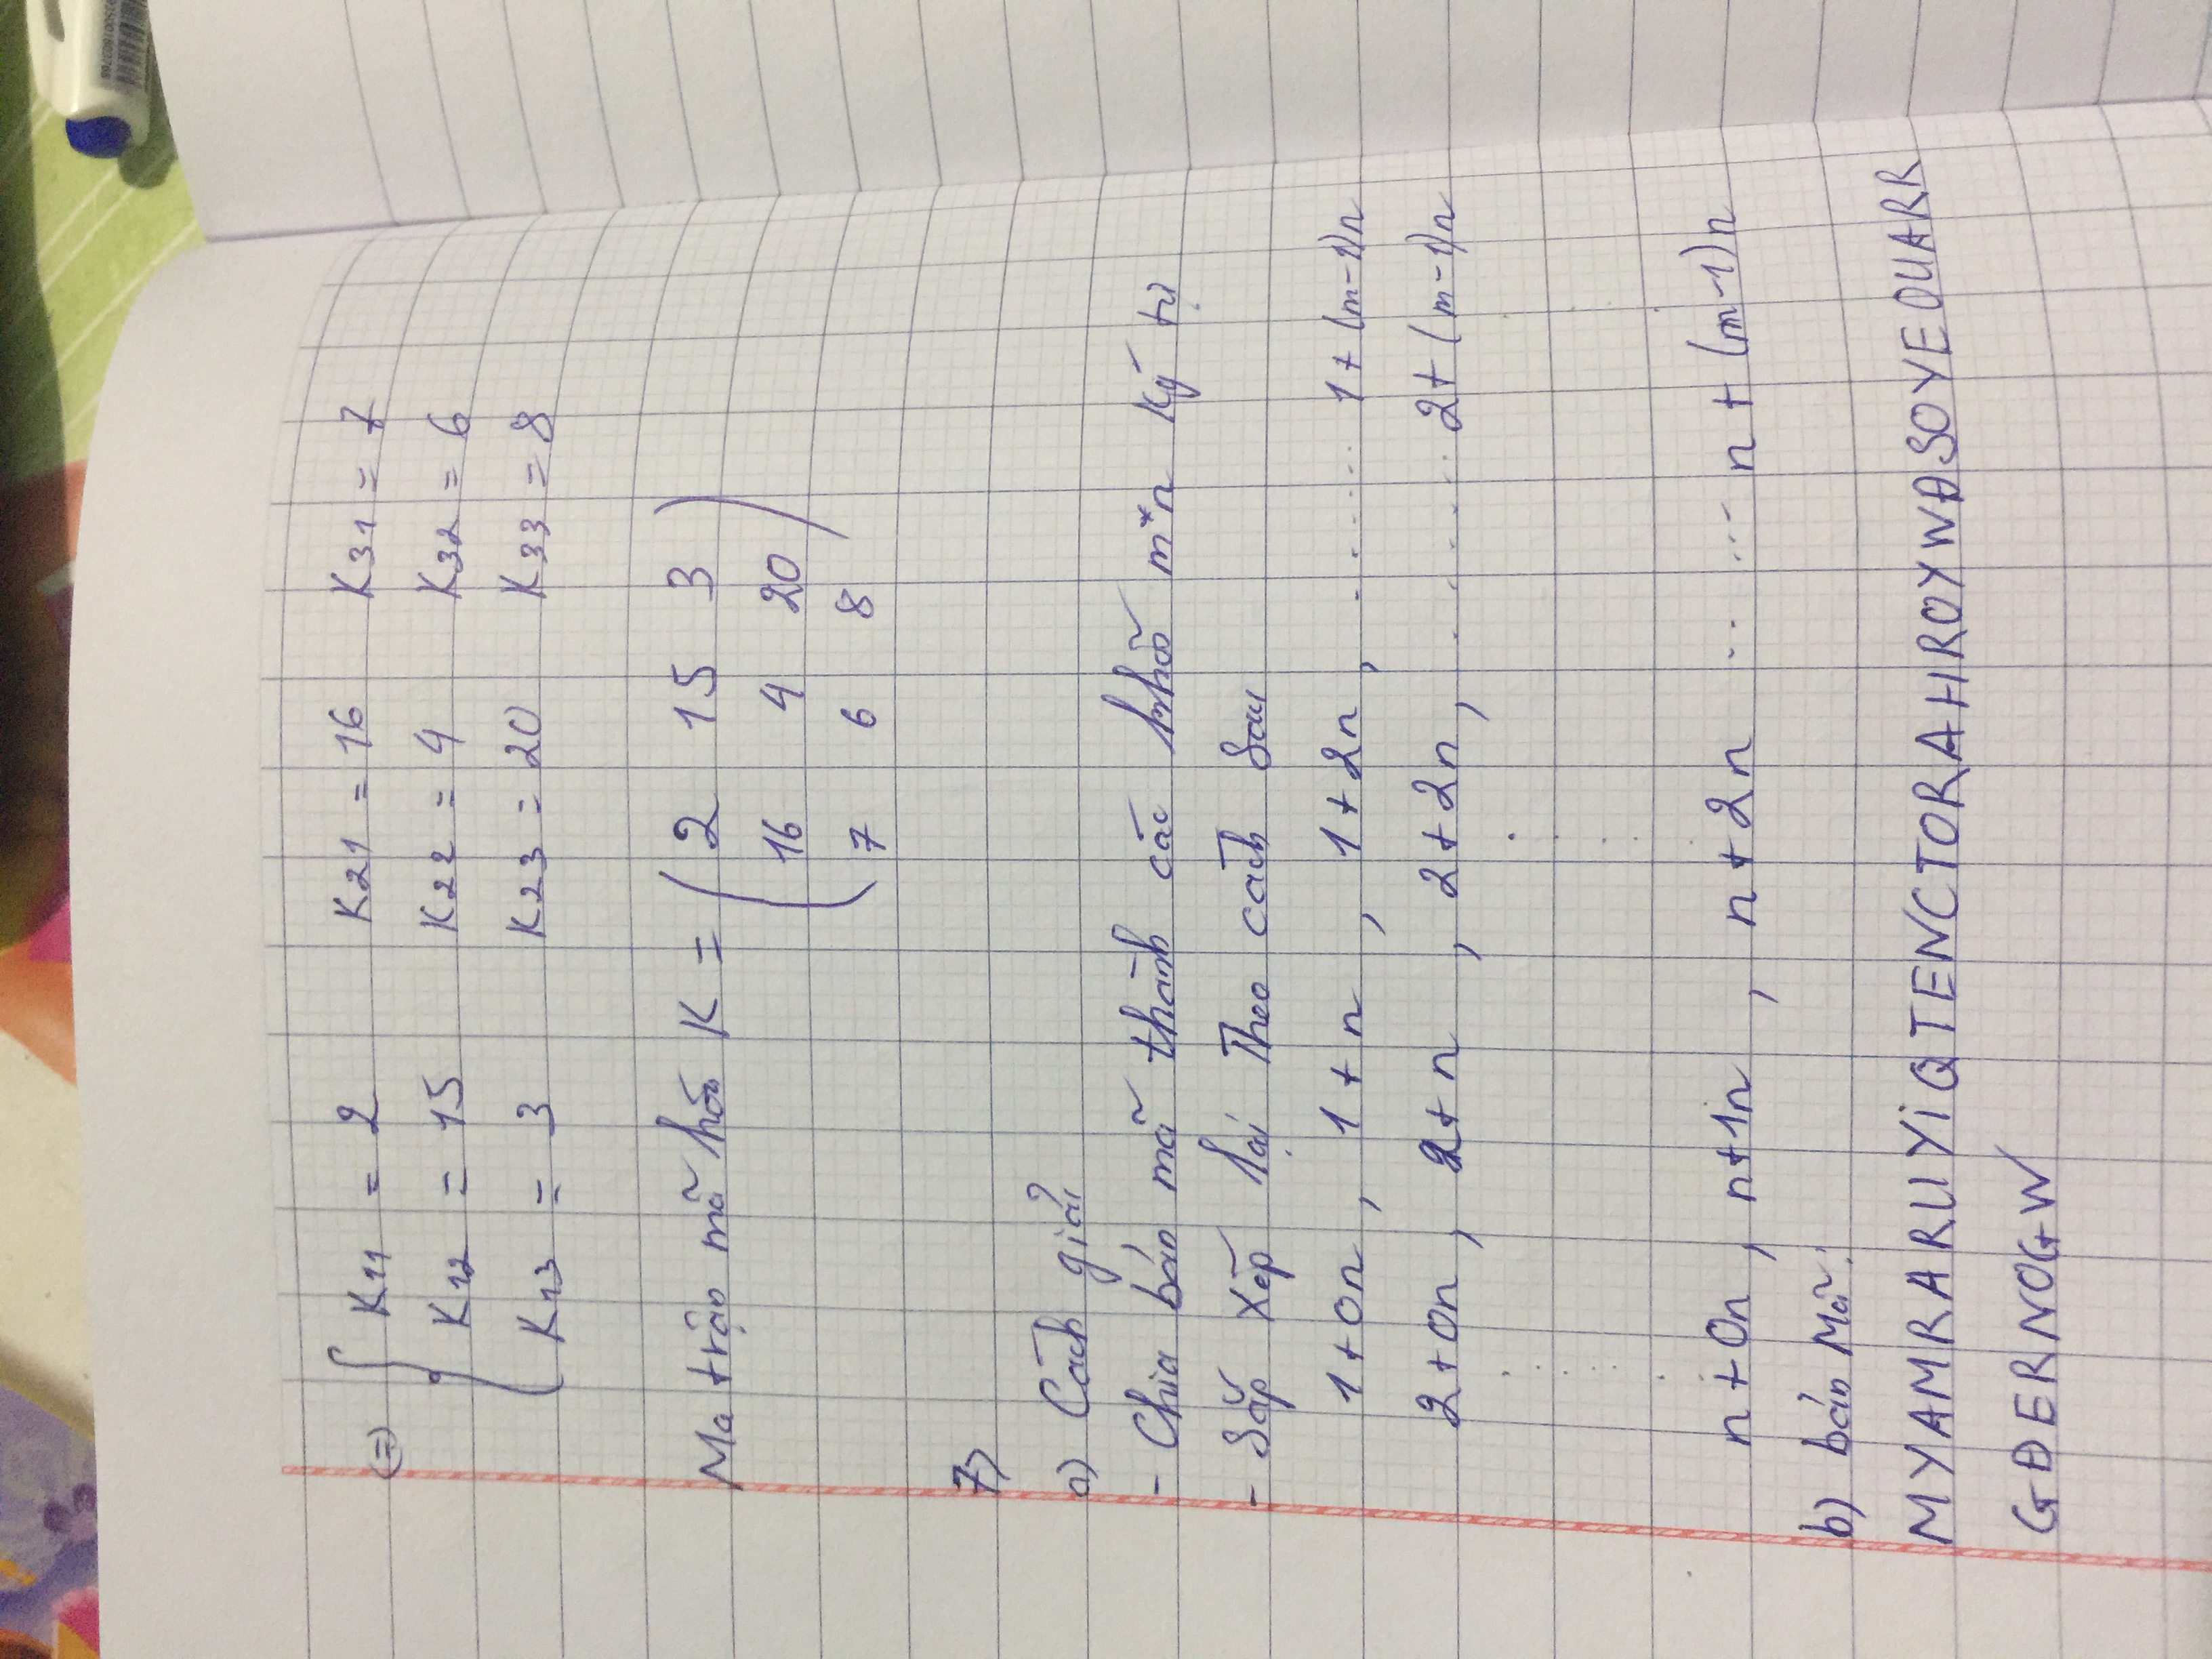 (=) { K11 = 2 K21 = 16 K31 = 7
K12 = 15 K22 = 4 K32 = 6
K13 = 3 K23 = 20 K33 = 8
Ma trận mã hóa K = ( 2 15 3
16 4 20
7 6 8 )
7)
a) Cách giải
- Chia bản mã thành các khối m*n ký tự
- Sắp xếp lại Theo cách sau
1+0n , 1+n , 1+2n , ....... 1+(m-1)n
2+0n , 2+n , 2+2n , ....... 2+(m-1)n
n+0n , n+1n , n+2n ...... n+(m-1)n
b) bản Mã:
MYAMRARUYiQTENCTORAHROYWĐSOYEOUARR
GĐERNOGW